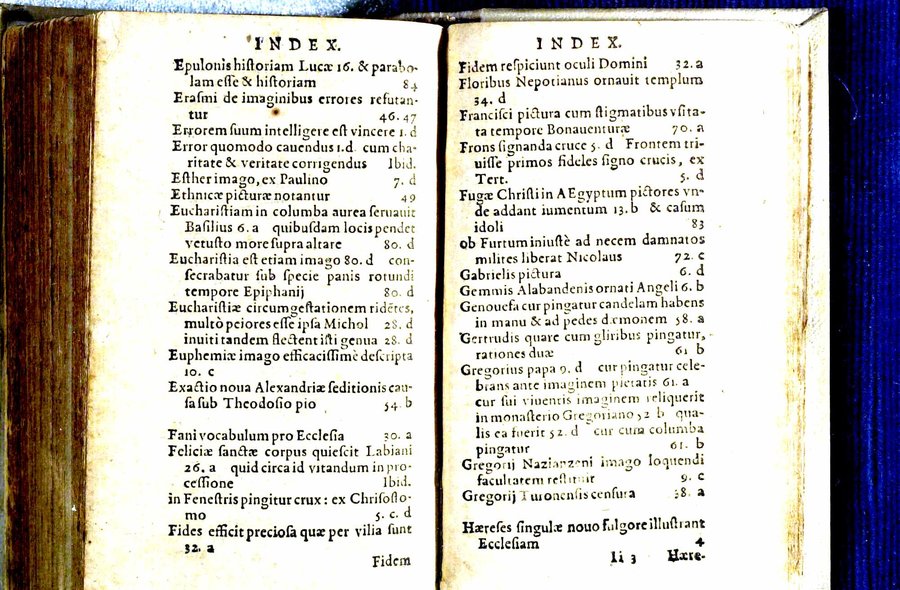 INDEX.
Epulonis historiam Lucæ 16. & parabo-
lam esse & historiam 84
Erasmi de imaginibus errores refutan-
tur 46. 47
Errorem suum intelligere est vincere 1. d
Error quomodo cauendus 1.d. cum cha-
ritate & veritate corrigendus Ibid.
Esther imago, ex Paulino 7. d
Ethnicæ picturæ notantur 49
Eucharistiam in columba aurea seruauit
Basilius 6. a quibusdam locis pendet
vetusto more supra altare 80. d
Eucharistia est etiam imago 80. d con-
secrabatur sub specie panis rotundi
tempore Epiphanij 80. d
Eucharistiæ circumgestationem ridẽtes,
multò peiores esse ipsa Michol 28. d
inuiti tandem flectent isti genua 28. d
Euphemiæ imago efficacissimè descripta
10. c
Exactio noua Alexandriæ seditionis cau-
sa sub Theodosio pio 54. b
Fani vocabulum pro Ecclesia 30. a
Feliciæ sanctæ corpus quiescit Labiani
26. a quid circa id vitandum in pro-
cessione Ibid.
in Fenestris pingitur crux: ex Chrisosto-
mo 5. c. d
Fides efficit preciosa quæ per vilia sunt
32. a
Fidem
INDEX.
Fidem respiciunt oculi Domini 32. a
Floribus Nepotianus ornauit templum
34. d
Francisci pictura cum stigmatibus vsita-
ta tempore Bonauenturæ 70. a
Frons signanda cruce 5. d Frontem tri-
uisse primos fideles signo crucis, ex
Tert. 5. d
Fugæ Christi in AEgyptum pictores vn-
de addant iumentum 13. b & casum
idoli 83
ob Furtum iniustè ad necem damnatos
milites liberat Nicolaus 72. c
Gabrielis pictura 6. d
Gemmis Alabandenis ornati Angeli 6. b
Genouefa cur pingatur candelam habens
in manu & ad pedes dæmonem 58. a
Gertrudis quare cum gliribus pingatur,
rationes duæ 61 b
Gregorius papa 9. d cur pingatur cele-
brans ante imaginem pietatis 61. a
cur sui viuentis imaginem reliquerit
in monasterio Gregoriano 52 b qua-
lis ea fuerit 52. d cur cum columba
pingatur 61. b
Gregorij Nazianzeni imago loquendi
facultatem restituit 9. c
Gregorij Turonensis censura 38. a
Hæreses singulæ nouo fulgore illustrant
Ecclesiam 4
Ii 3 Hære-